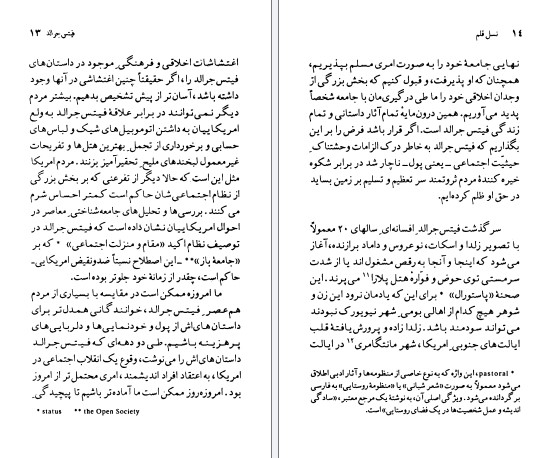 فیتس جرالد ۱۳
اغتشاشات اخلاقی و فرهنگیِ موجود در داستان‌های
فیتس جرالد را، اگر حقیقتاً چنین اغتشاشی در آنها وجود
داشته باشد، آسان‌تر از پیش تشخیص بدهیم. بیشتر مردم
دیگر نمی‌توانند در برابر علاقهٔ فیتس جرالد به ولع
امریکاییان به داشتن اتوموبیل‌های شیک و لباس‌های
حسابی و برخورداری از تجمل بهترین هتل‌ها و تفریحات
غیرمعمول لبخندهای ملیح تحقیرآمیز بزنند. مردم امریکا
مثل این است که حالا دیگر از تفرعنی که بر بخش بزرگی
از نظام اجتماعی‌شان حاکم است کمتر احساس شرم
می‌کنند. بررسی‌ها و تحلیل‌های جامعه‌شناختیِ معاصر در
احوال امریکاییان نشان داده است که فیتس جرالد در
توصیف نظام اکید «مقام و منزلت اجتماعی» * که بر
«جامعهٔ باز»** ـ این اصطلاح نسبتاً ضدونقیض امریکایی ـ
حاکم است، چقدر از زمانهٔ خود جلوتر بوده است.
ما امروزه ممکن است در مقایسه با بسیاری از مردم
هم‌عصرِ فیتس جرالد، خوانندگانی همدل‌تر برای
داستان‌های‌اش از پول و خودنمایی‌ها و دلربایی‌های
پرهزینه باشیم. طی دو دهه‌ای که فیتس جرالد
داستان‌های‌اش را می‌نوشت، وقوع یک انقلاب اجتماعی در
امریکا، به اعتقاد افراد اندیشمند، امری محتمل‌تر از امروز
بود. امروزه‌روز ممکن است ما آماده‌تر باشیم تا پیچیدگیِ
* status ** the Open Society
۱۴ نسل قلم
نهایی جامعهٔ خود را به صورت امری مسلم بپذیریم،
همچنان که او پذیرفت، و قبول کنیم که بخش بزرگی از
وجدان اخلاقی خود را ما طی درگیری‌مان با جامعه شخصاً
پدید می‌آوریم. همین درون‌مایهٔ تمام آثار داستانی و تمام
زندگی فیتس جرالد است. اگر قرار باشد فرض را بر این
بگذاریم که فیتس جرالد به خاطر درک الزامات وحشتناکِ
حیثیّت اجتماعی ـ یعنی پول ـ ناچار شد در برابر شکوه
خیره کنندهٔ مردم ثروتمند سر تعظیم و تسلیم بر زمین بساید
در حق او ظلم کرده‌ایم.
سرگذشت فیتس جرالدِ افسانه‌ایِ سالهای ۲۰ معمولاً
با تصویر زلدا و اسکات، نوعروس و داماد برازنده، آغاز
می‌شود که اینجا و آنجا به رقص مشغول‌اند یا از شدت
سرمستی توی حوض و فوّارهٔ هتل پلازا۱۱ می‌پرند. این
صحنهٔ «پاستورال» * برای این که یادمان نرود این زن و
شوهر هیچ کدام از اهالی بومی شهر نیویورک نبودند
می‌تواند سودمند باشد. زلدا زاده و پرورش‌یافتهٔ قلب
ایالت های جنوبیِ امریکا، شهر مانتگامری۱۲ در ایالت
* pastoral، این واژه که به نوع خاصی از منظومه‌ها و آثار ادبی اطلاق
می‌شود معمولاً به صورت «شعر شبانی» یا «منظومهٔ روستایی» به فارسی
برگردانده می‌شود. ویژگی اصلی آن، به نوشتهٔ یک مرجع معتبر، «سادگی
اندیشه و عمل شخصیت‌ها در یک فضای روستایی» است.